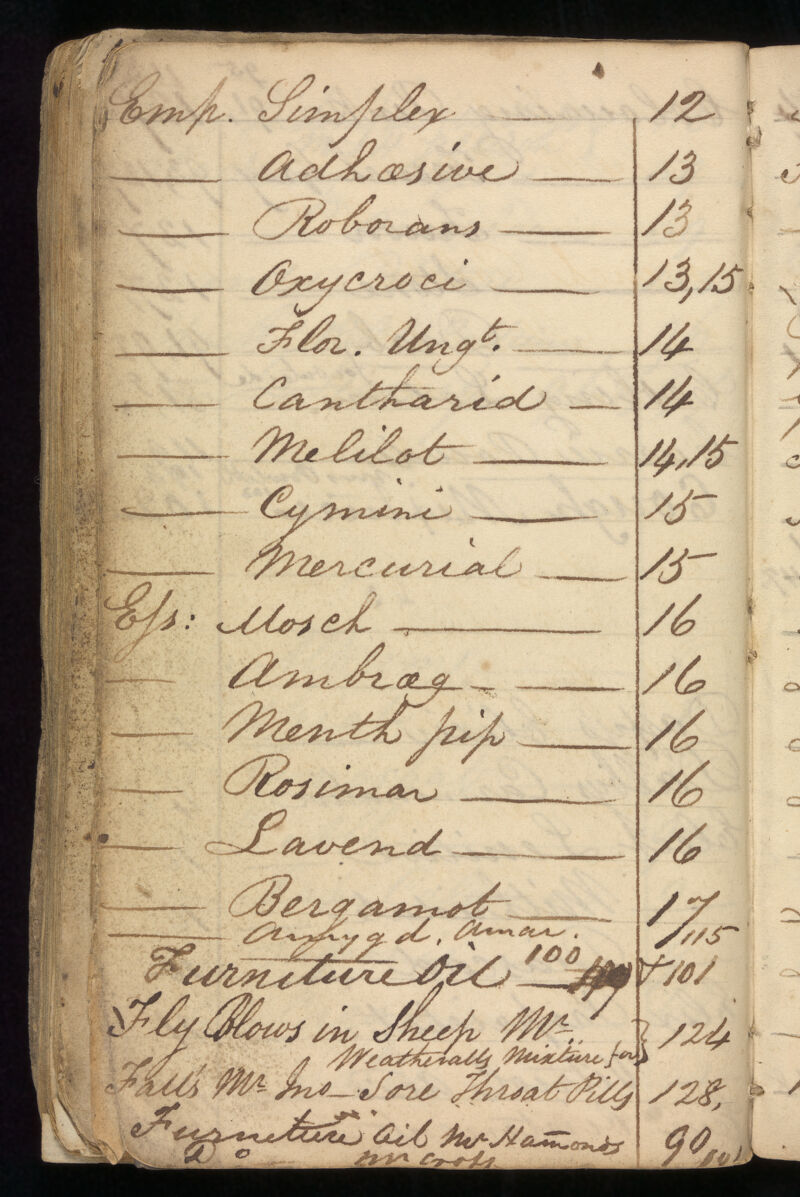 Emp. Simplex — 12
— Adhæsive — 13
— Roborans — 13
— Oxycroci — 13,15
— Flor. Ungt. — 14
— Cantharid — 14
— Melilot — 14,15
— Cymini — 15
— Mercurial — 15
Eſs: Mosch — 16
— Ambræg — 16
— Menth pip — 16
— Rosimar — 16
— Lavend — 16
— Bergamot — 17
— Amygd. Amar. 115
Furniture Oil 100 & 101
Fly Blows in Sheep Mr.
Weatheralls Mixture for} 124
Falls Mr Jno — Sore Throat Pills 128,
Furniture Oil Mr Hamonds 90
Do — Mr